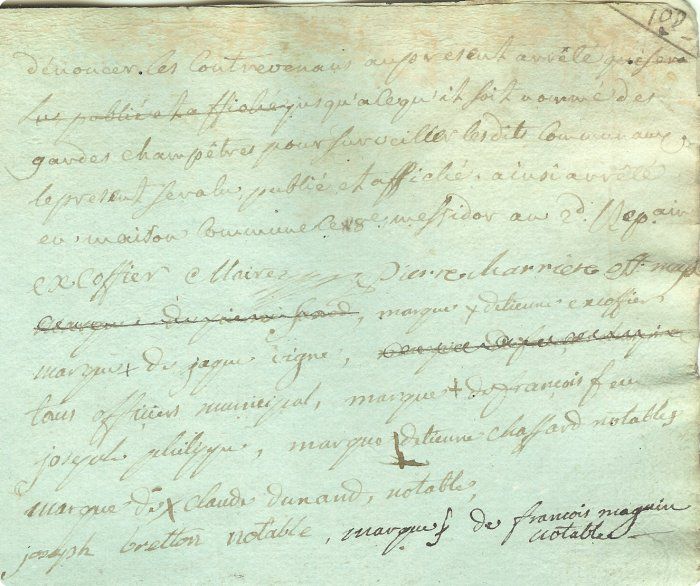 102
dénoncer les Contrevenans aupresent arrêté qui sera
Lu publié et affiché jusqu'a lequ'it soit nommé des
gardes champêtres pour surveiller lesdits Communaux
le present sera lu publié et affiché. ainsi arrêlé
en maison Commune Le 18e messidor an 2d. Rep.ain
excoffier Maire Pierre charriere off. mup
marque x detienne excoffier
marque x de jaque Zigne,
tous officiers municipal, marque + de françois feu
joseph philippe, marque detienne chaffard notables
marque de x claude dunand, notable,
joseph bretton notable, marque de francois maguin
notable